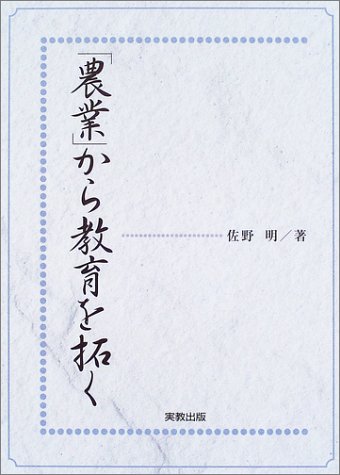 「農業」から教育を拓く
佐野 明／著
実教出版